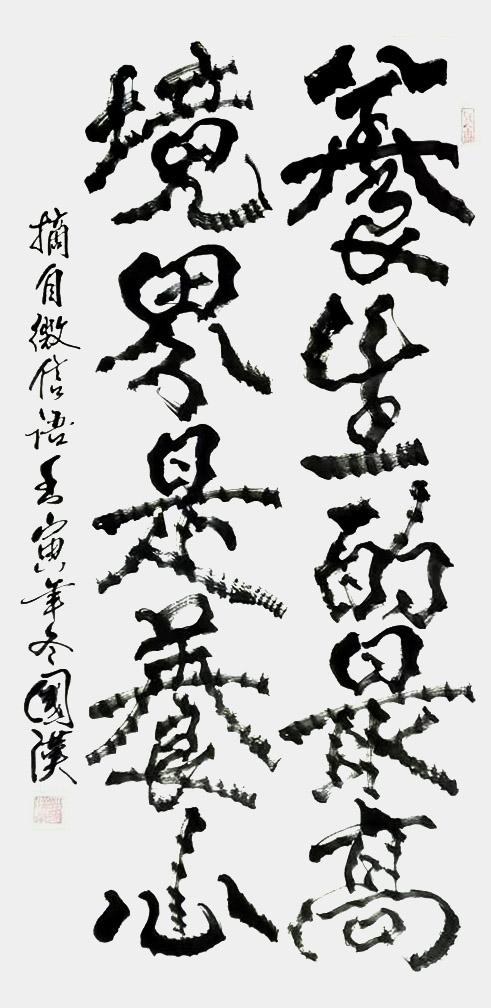 養生的最高
境界是養心
摘自微信语壬寅年冬國漢